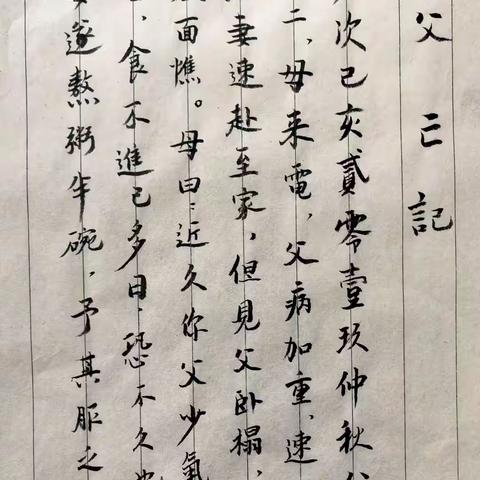 父亡記
次己亥貳零壹玖仲秋
二，母来電，父病加重、速
妻速赴至家，但見父卧榻，
面憔。母曰：近久你父少氣
，食不進已多日、恐不久也
遂熬粥半碗，予其服之